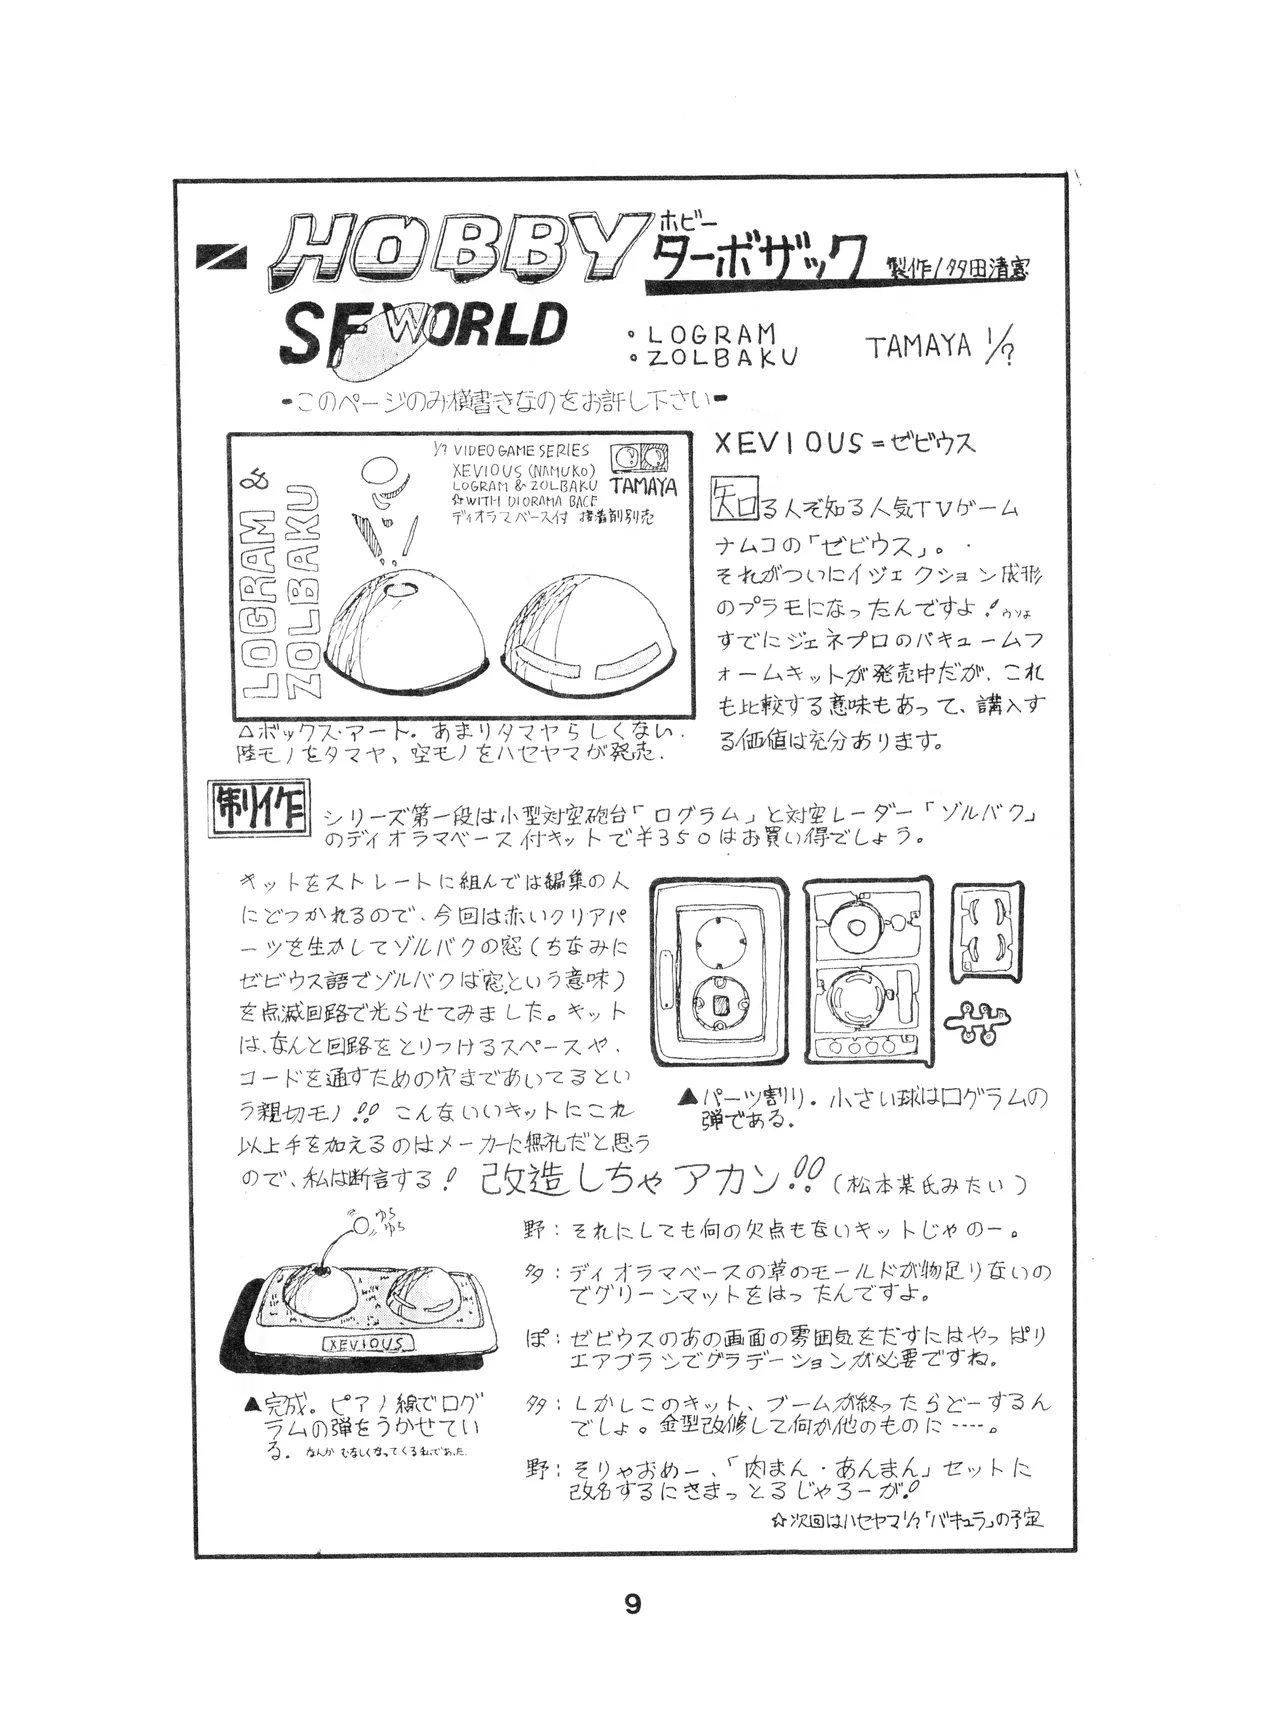 HOBBY
ホビー
ターボザック 製作/多田清憲
SF WORLD
・LOGRAM
・ZOLBAKU
TAMAYA 1/?
ーこのページのみ横書きなのをお許し下さいー
LOGRAM &
ZOLBAKU
1/? VIDEO GAME SERIES
XEVIOUS (NAMUKO)
LOGRAM & ZOLBAKU
☆WITH DIORAMA BACE
ディオラマベース付 接着剤別売
TAMAYA
△ボックス・アート。あまりタマヤらしくない.
陸モノをタマヤ、空モノをハセヤマが発売.
XEVIOUS=ゼビウス
知る人ぞ知る人気TVゲーム
ナムコの「ゼビウス」。
それがついにイジェクション成形
のプラモになったんですよ!ウソよ
すでにジェネプロのバキュームフ
ォームキットが発売中だが、これ
も比較する意味もあって、講入す
る価値は充分あります。
制作
シリーズ第一段は小型対空砲台「ログラム」と対空レーダー「ゾルバク」
のディオラマベース付キットで¥350はお買い得でしょう。
キットをストレートに組んでは編集の人
にどつかれるので、今回は赤いクリアパ
ーツを生かしてゾルバクの窓(ちなみに
ゼビウス語でゾルバクは窓という意味)
を点滅回路で光らせてみました。キット
は、なんと回路をとりつけるスペースや、
コードを通すための穴まであいてるとい
う親切モノ!!こんないいキットにこれ
以上手を加えるのはメーカーに無礼だと思う
ので、私は断言する!改造しちゃアカン!!(松本某氏みたい)
▲パーツ割り。小さい球はログラムの
弾である。
ゆら
ゆら
XEVIOUS
▲完成。ピアノ線でログ
ラムの弾をうかせてい
る。なんか むなしくなってくる私であった.
野:それにしても何の欠点もないキットじゃのー。
多:ディオラマベースの草のモールドが物足りないの
でグリーンマットをはったんですよ。
ぽ:ゼビウスのあの画面の雰囲気をだすにはやっぱり
エアブラシでグラデーションが必要ですね。
多:しかしこのキット、ブームが終ったらどーするん
でしょ。金型改修して何か他のものに……。
野:そりゃおめー、「肉まん・あんまん」セットに
改名するにきまっとるじゃろーが!
☆次回はハセヤマ1/?「バキュラ」の予定
9